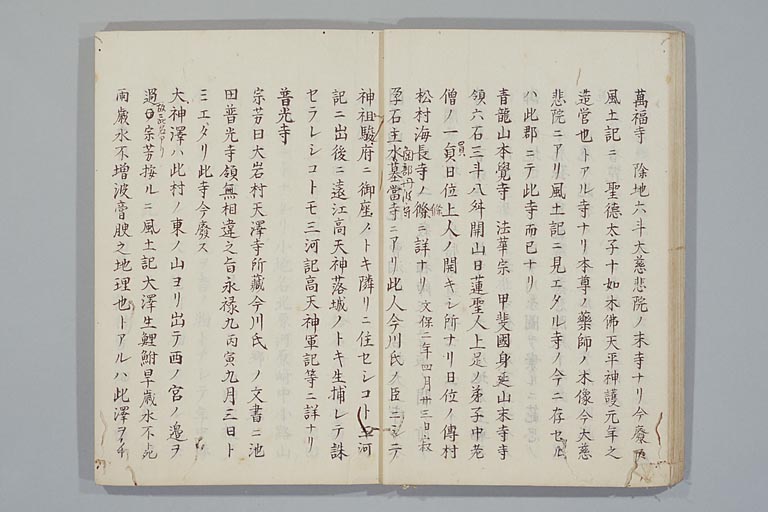 萬福寺 除地六斗大慈悲院ノ末寺ナリ今廢ス
風土記ニ聖德太子十如本佛天平神護元年之
造営也トアル寺ナリ本尊ノ藥師ノ木像今大慈
悲院ニアリ風土記ニ見エタル寺ノ今ニ存セル
ハ此郡ニテ此寺而已ナリ
青龍山本覺寺 法華宗 甲斐國身延山末寺寺
領六石三斗八舛開山日蓮聖人上足ノ弟子中老
僧ノ一員日位上人ノ開キシ所ナリ日位ノ傳村
松村海長寺ノ條ニ詳ナリ文保二年四月廿三日寂
孕石主水墓當寺ニアリ此人今川氏ノ臣ニシテ
神祖駿府ニ御座ノトキ隣リニ住セシコト三河
記ニ出後ニ遠江高天神落城ノトキ生捕レテ誅
セラレシコトモ三河記高天神軍記等ニ詳ナリ
普光寺
宗芳曰大岩村天澤寺所藏今川氏ノ文書ニ池
田普光寺領無相違之旨永禄九丙寅九月三日ト
ミエタリ此寺今廢ス
大神澤ハ此村ノ東ノ山ヨリ出テ西ノ宮ノ邉ヲ
過故ニ此名アリ宗芳按ルニ風土記大澤生鯉鮒旱歳水不
雨歳水不増波膏腴之地理也トアルハ此澤ヲ